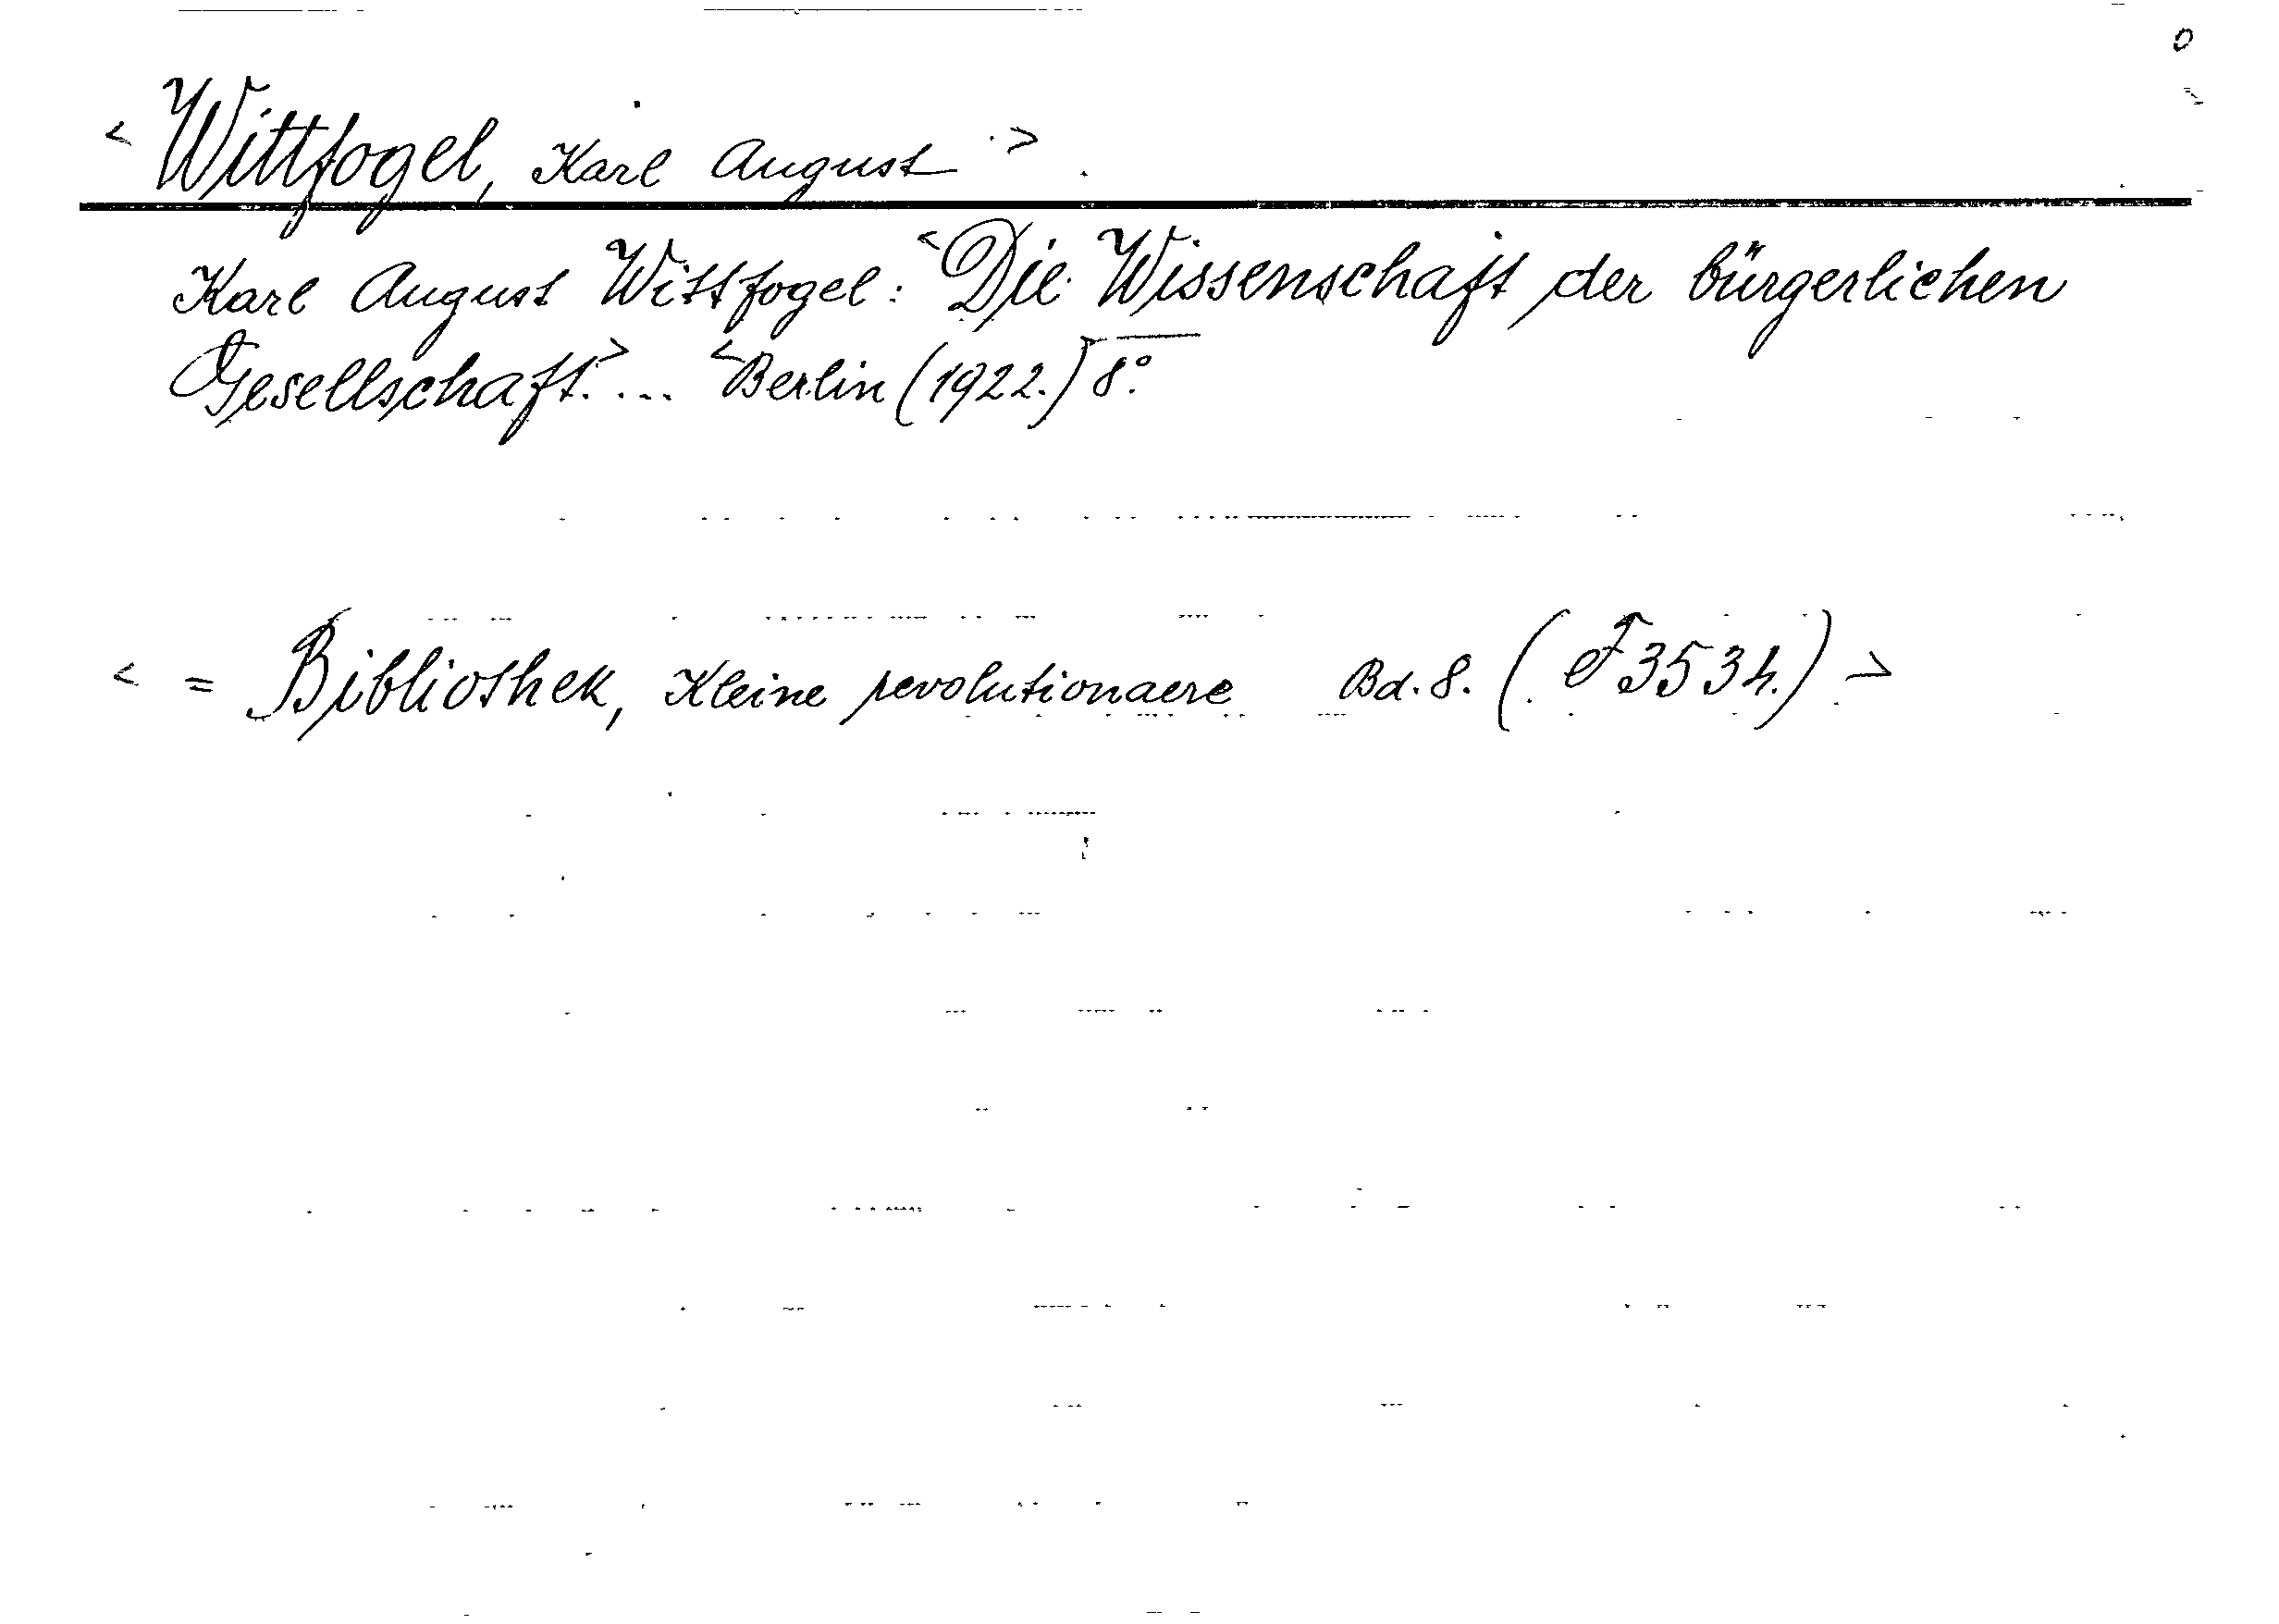 0
< Wittfogel, Karl August >
Karl August Wittfogel: <Die Wissenschaft der bürgerlichen
Gesellschaft.> ... <Berlin (1922.) 8°.
< = Bibliothek, Kleine revolutionaere Bd. 8. (F 3534.) >